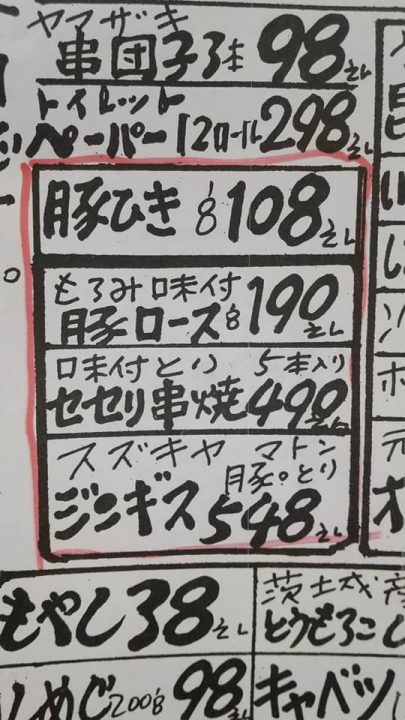 ヤマザキ
串団子3本 98えん
トイレット
ペーパー12ロール 298えん
豚ひき 108えん
もろみ味付
豚ロース 190えん
味付とり 5本入り
セセリ串焼 490えん
スズキヤ マトン
豚。とり
ジンギス 548えん
もやし 38えん
茨土成産
とうもろこし
しめじ200g 98えん
キャベツ